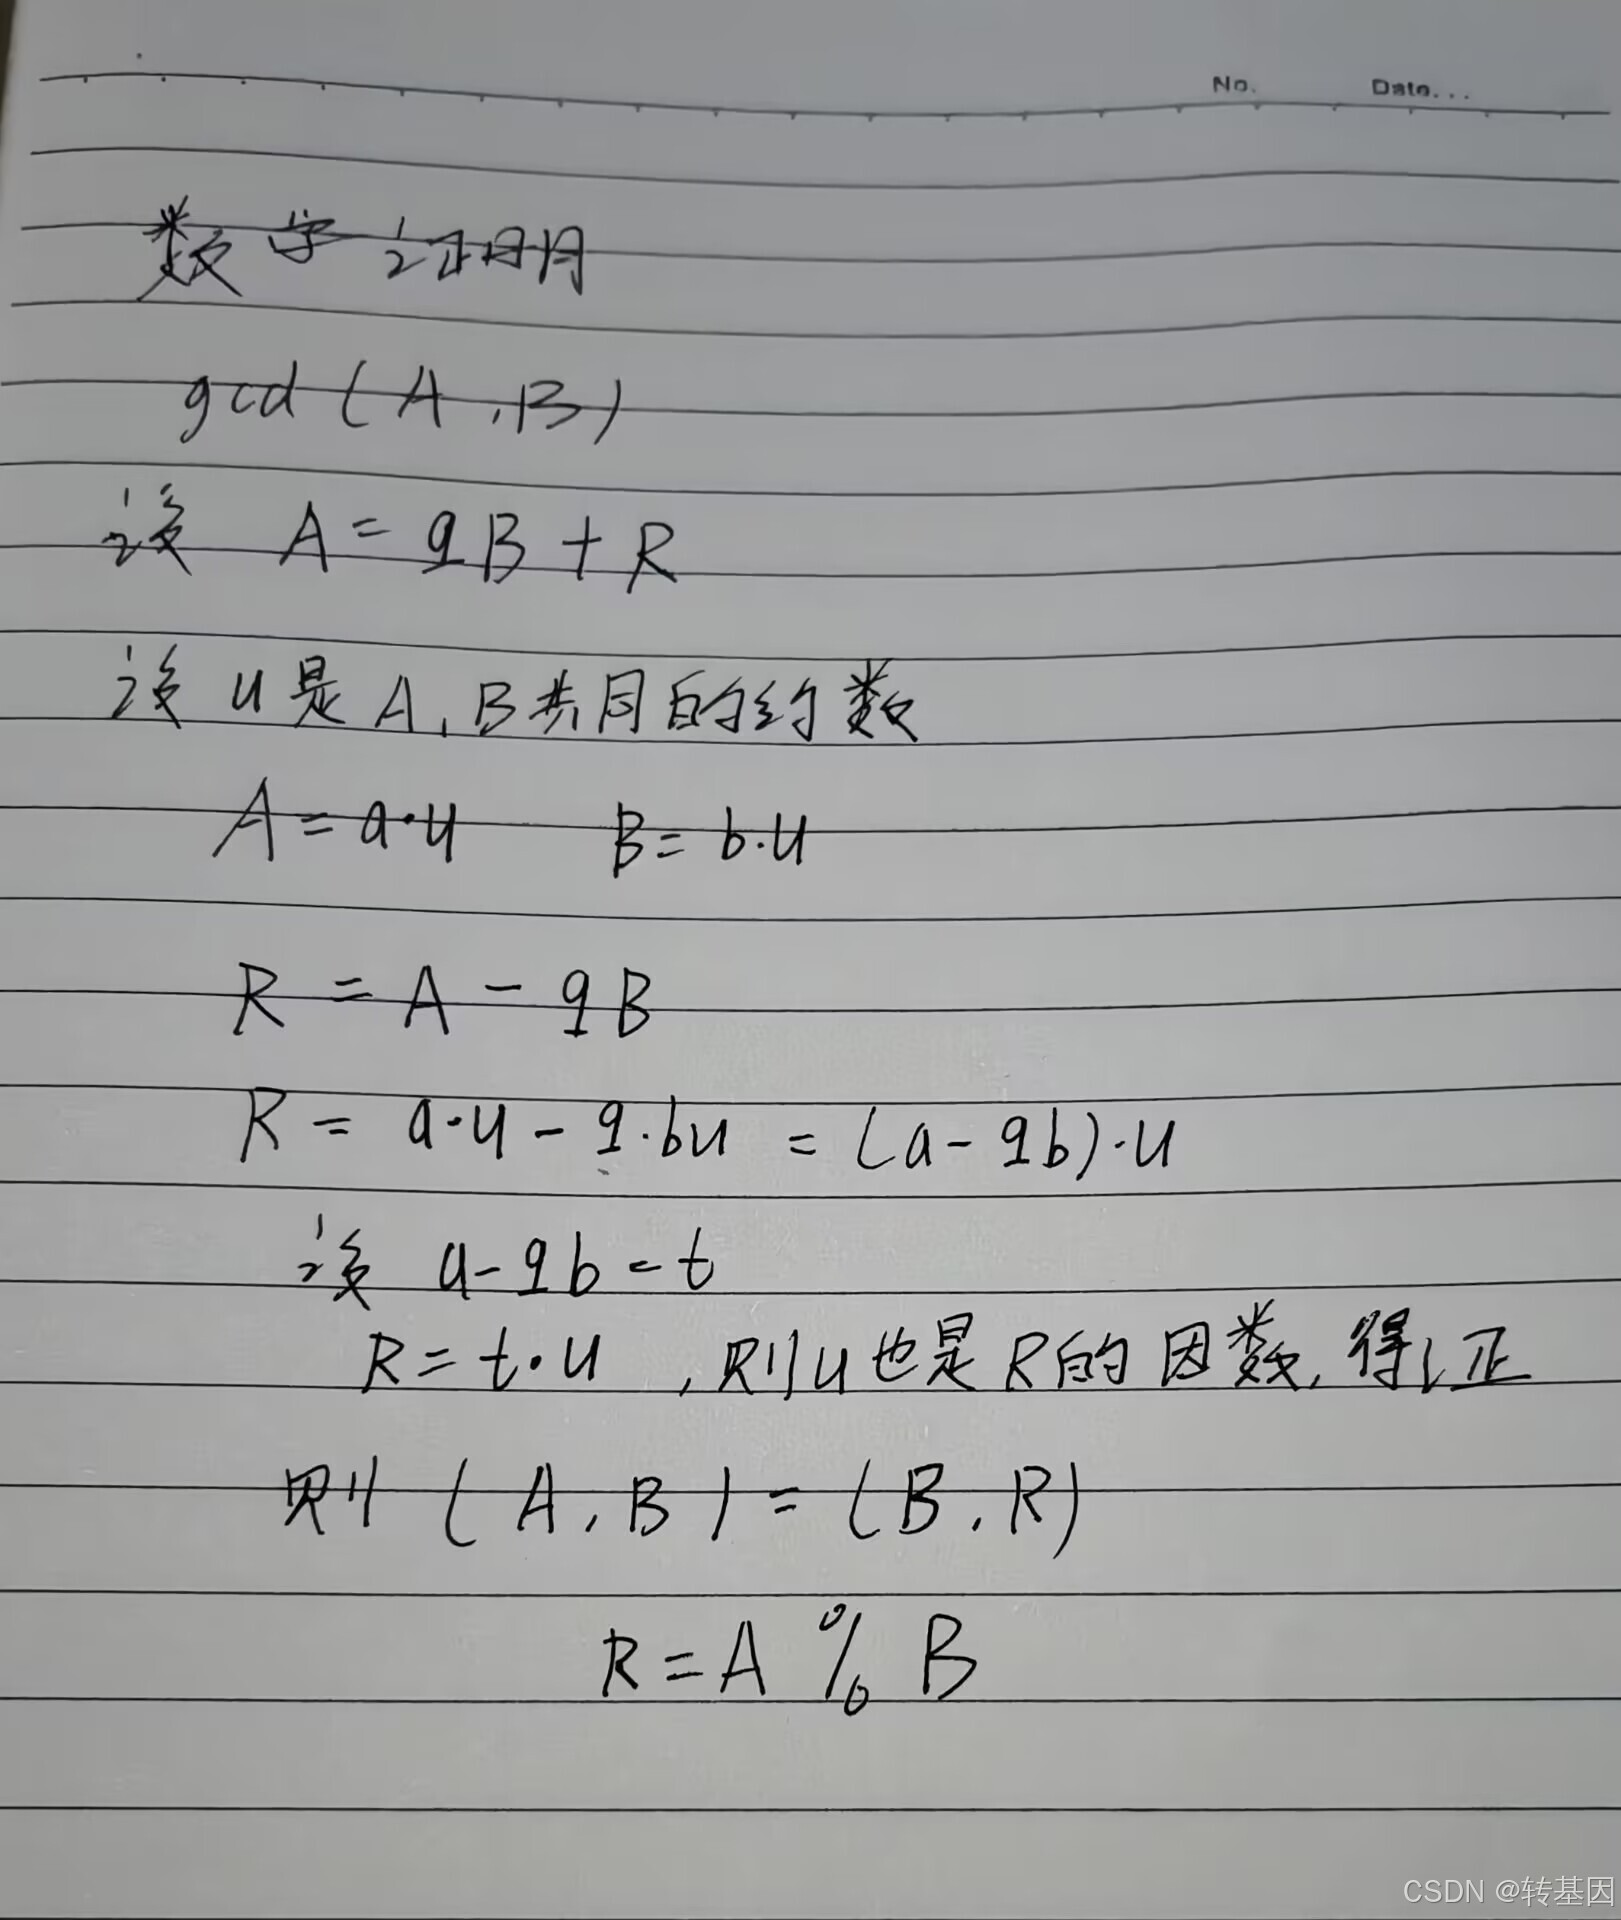 No. Date...
数学证明
gcd(A,B)
设 A=qB+R
设u是A,B共同的约数
A=a·u B=b·u
R=A-qB
R=a·u-q·bu=(a-qb)·u
设 a-qb=t
R=t·u,则u也是R的因数,得证
则(A,B)=(B,R)
R=A%B
CSDN @转基因